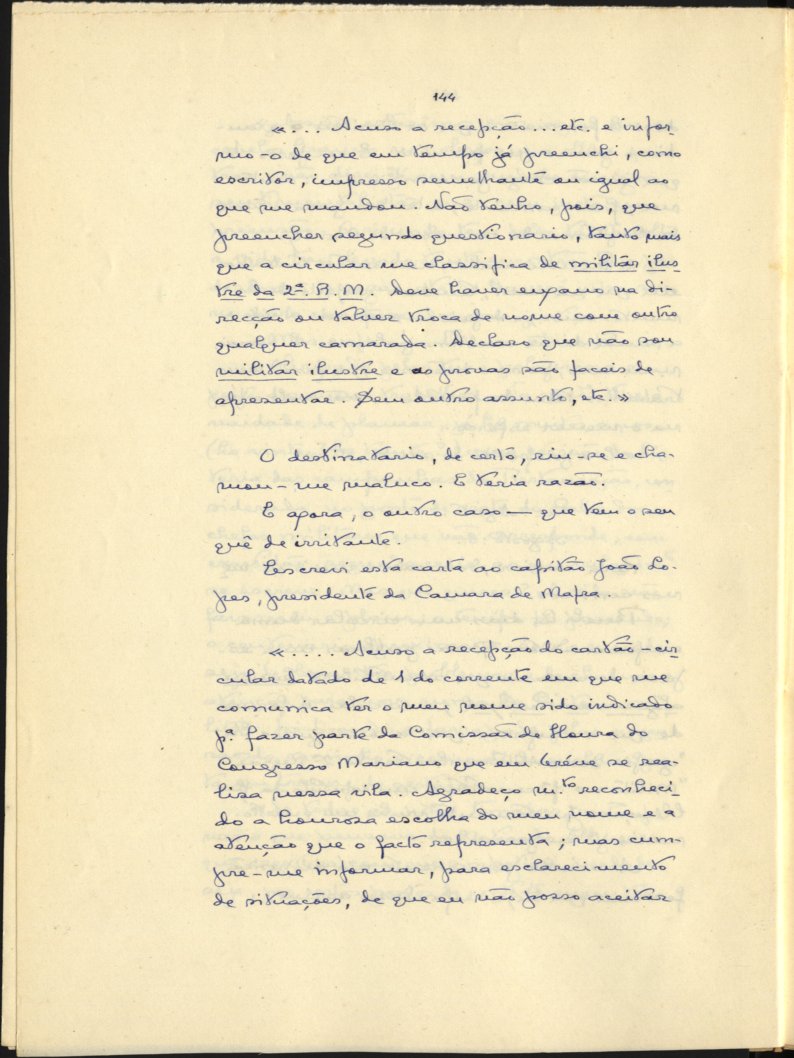 144
«... Acuso a recepção... etc. e infor-
mo-o de que em tempo já preenchi, como
escritor, impresso semelhante ou igual ao
que me mandou. Não tenho, pois, que
preencher segundo questionario, tanto mais
que a circular me classifica de militar ilus-
tre da 2ª. R. M. Deve haver engano na di-
recção ou talvez troca de nome com outro
qualquer camarada. Declaro que não sou
militar ilustre e as provas são faceis de
apresentar. Sem outro assunto, etc.»
O destinatario, de certo, riu-se e cha-
mou-me maluco. E teria razão.
E agora, o outro caso — que tem o seu
quê de irritante.
Escrevi esta carta ao capitão João Lo-
pes, presidente da Camara de Mafra.
«.... Acuso a recepção do cartão-cir-
cular datado de 1 do corrente em que me
comunica ter o meu nome sido indicado
pª. fazer parte da Comissão de Honra do
Congresso Mariano que em bréve se rea-
lisa nessa vila. Agradeço m.to reconheci-
do a honrosa escolha do meu nome e a
atenção que o facto representa; mas cum-
pre-me informar, para esclarecimento
de situações, de que eu não posso aceitar